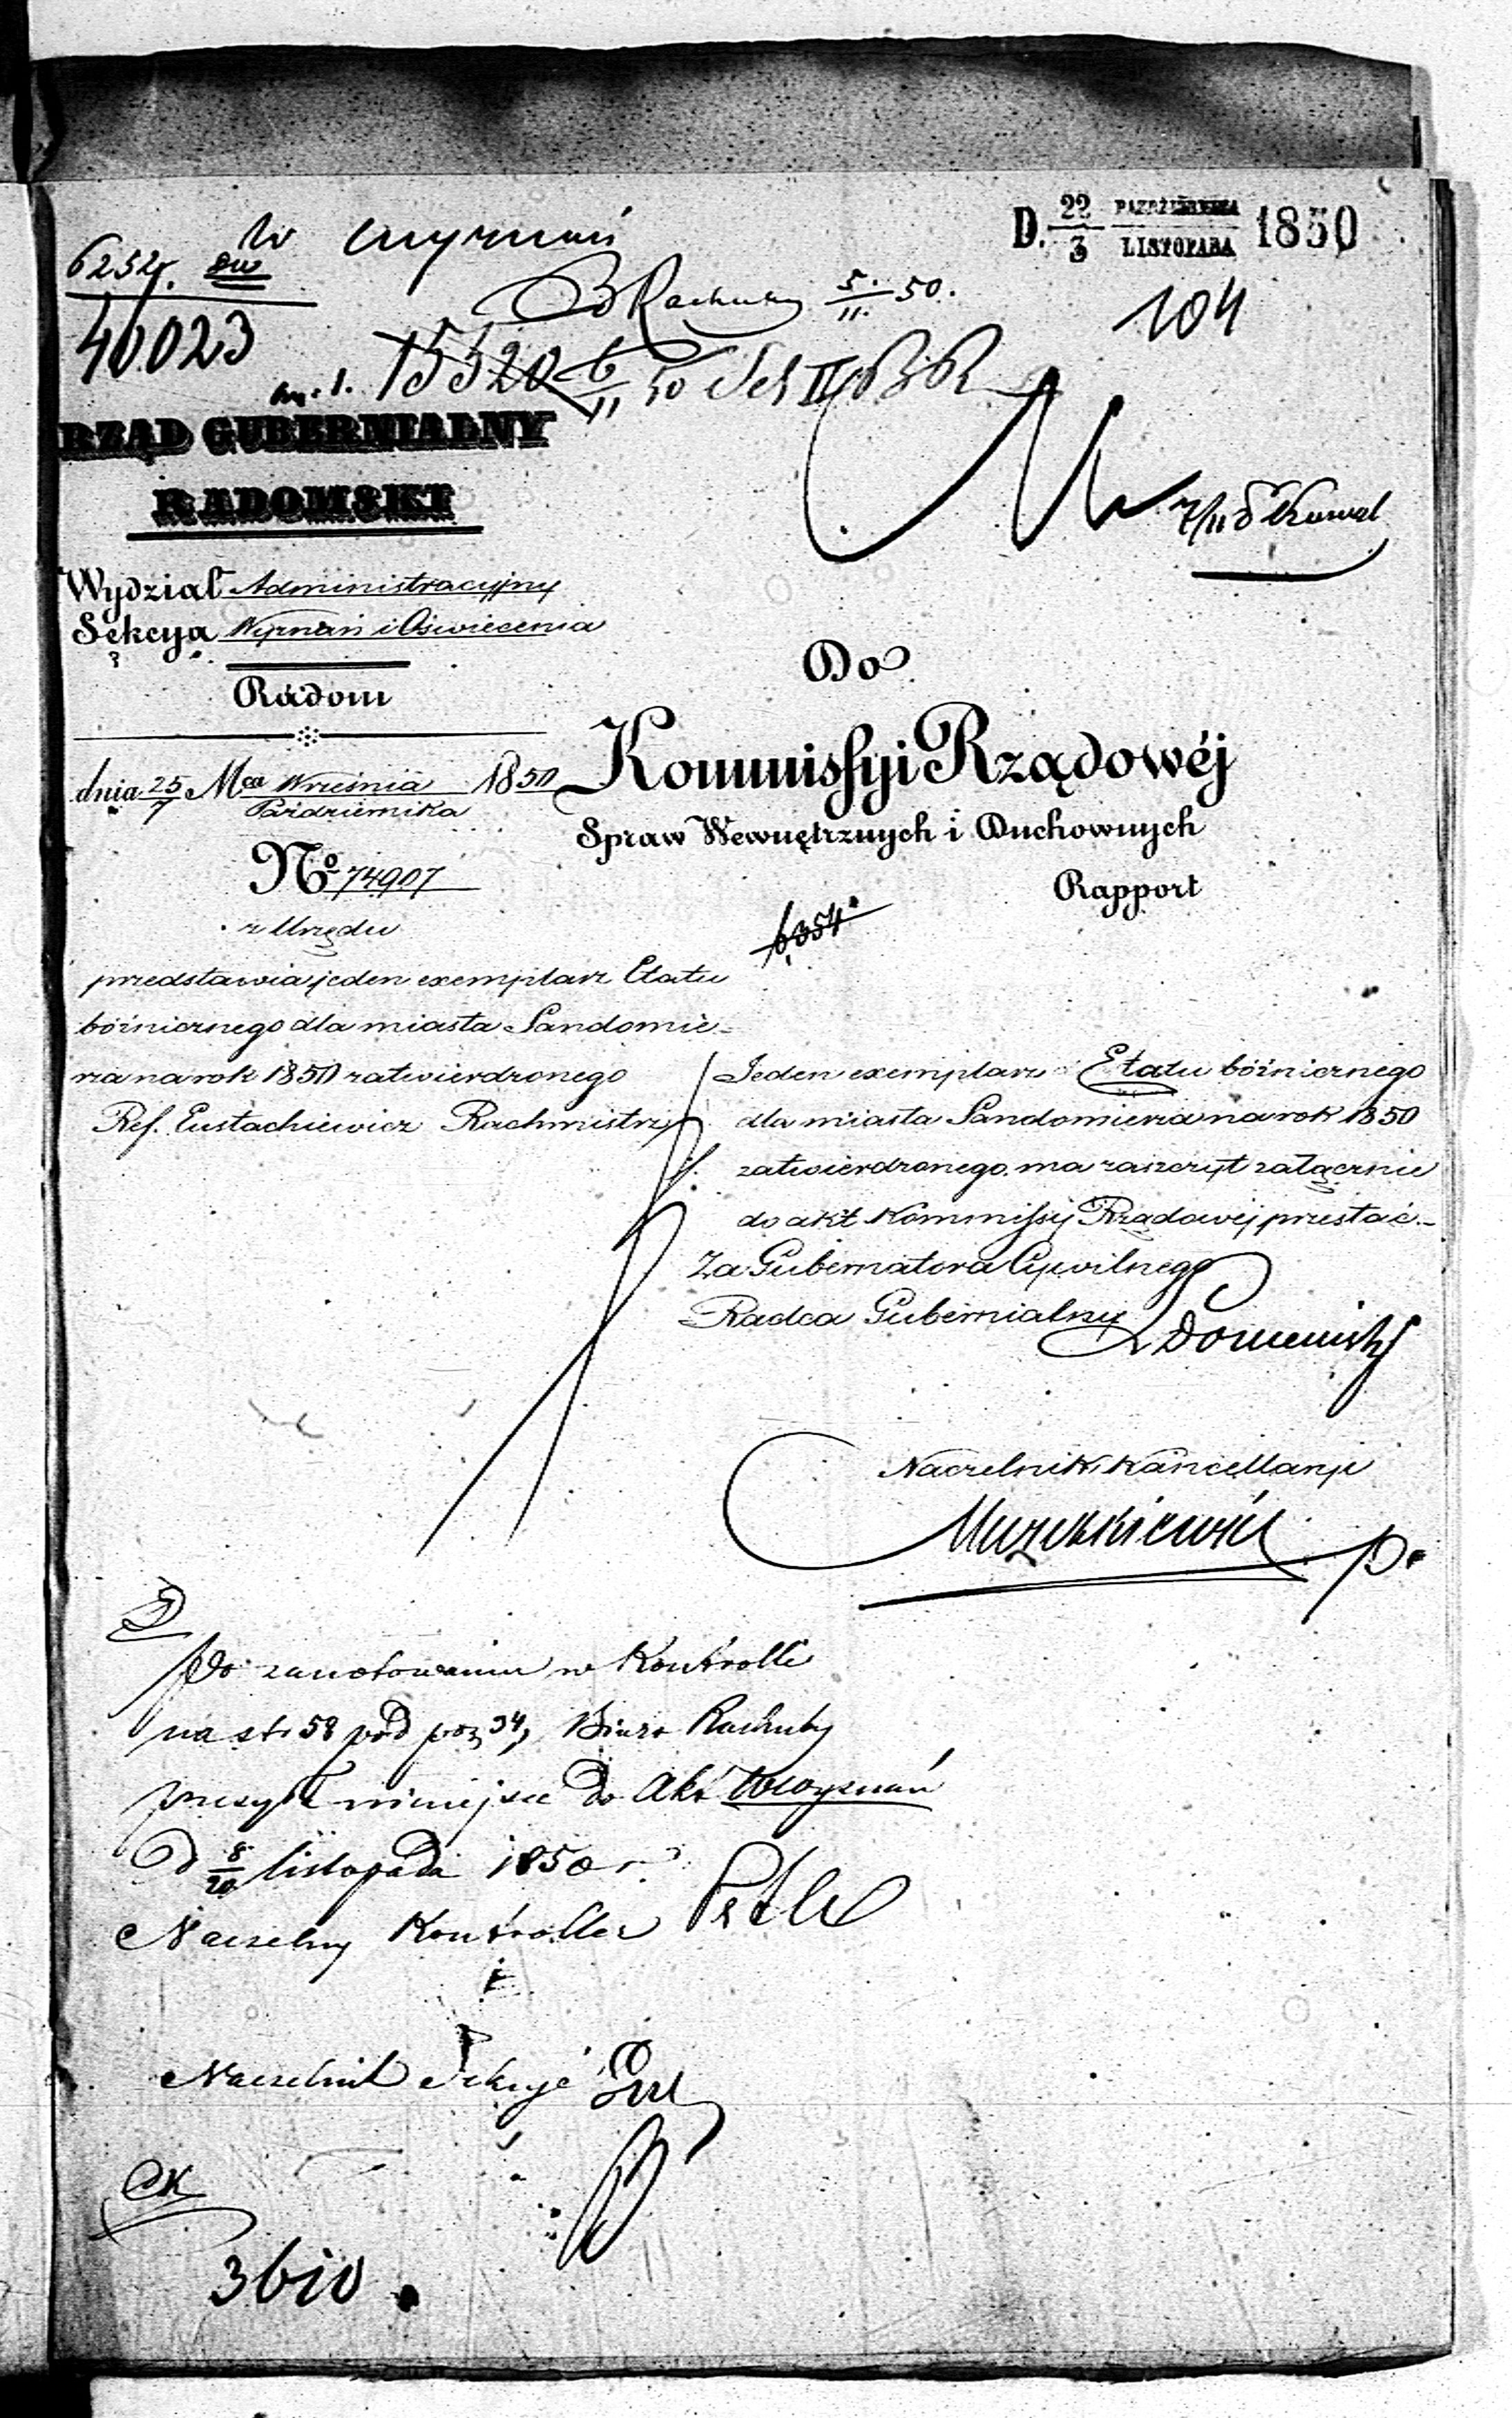 W Wyznań
D. 22/3 PAZDZIERNIKA/LISTOPADA 1850
6252
40023
B Rachuby 5/11 50.
104
15520 6/11 50
RZĄD GUBERNIALNY
RADOMSKI
Wydział Administracyjny
Sekcya Wyznań i Oświecenia
Radom
dnia 25/7 Mca Września/Października 1850
No 74907
z Urzędu
przedstawia jeden exemplarz Etatu
bóźnicznego dla miasta Sandomie-
rza na rok 1850 zatwierdzonego
Ref. Eustachiewicz Rachmistrz
Do
Kommissyi Rządowéj
Spraw Wewnętrznych i Duchownych
Rapport
6354
Jeden exemplarz Etatu bóźnicznego
dla miasta Sandomierza na rok 1850
zatwierdzonego ma zaszczyt załącznie
do akt Kommissyi Rządowéj przesłać.-
Za Gubernatora Cywilnego
Radca Gubernialny
Naczelnik Kancellaryi
Po zanotowaniu w Kontrolli
na str 58 pod poz 34, Biuro Rachuby
przesyła niniejsze do Akt Wyznań
D 8/20 listopada 1850 r.
Naczelny Kontroller
Naczelnik Sekcyi
3610